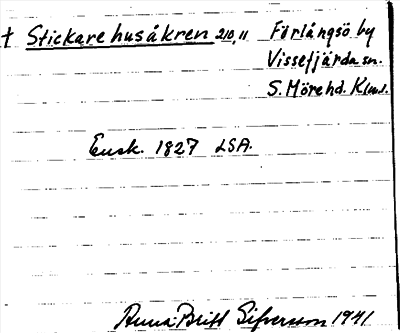 t Stickarehusåkren 210,11 Förlångsö by
Vissefjärda sn.
S. Möre hd. K
Ensk. 1827 LSA.
Anna Britt Sifversson 1941.